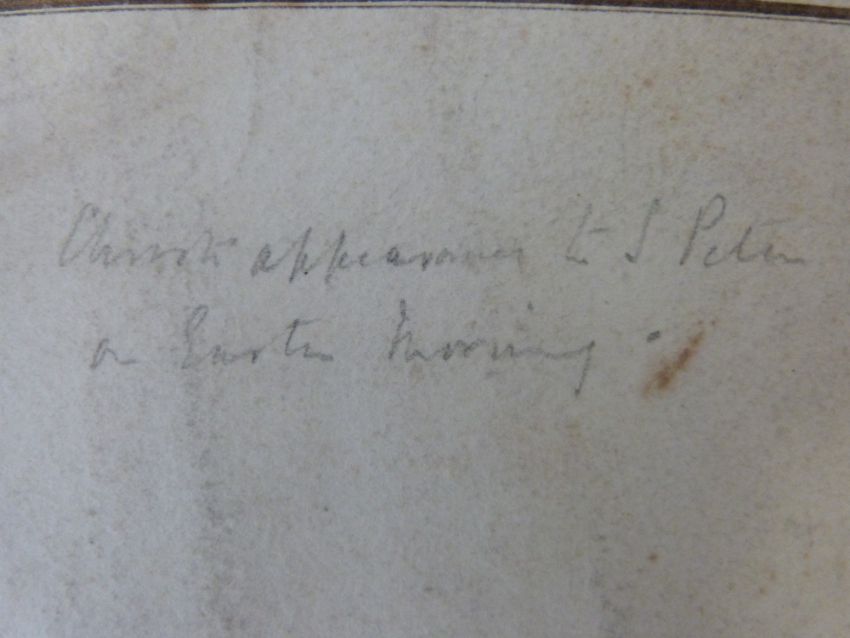 Christ's appearance to S Peter
on Easter Morning.